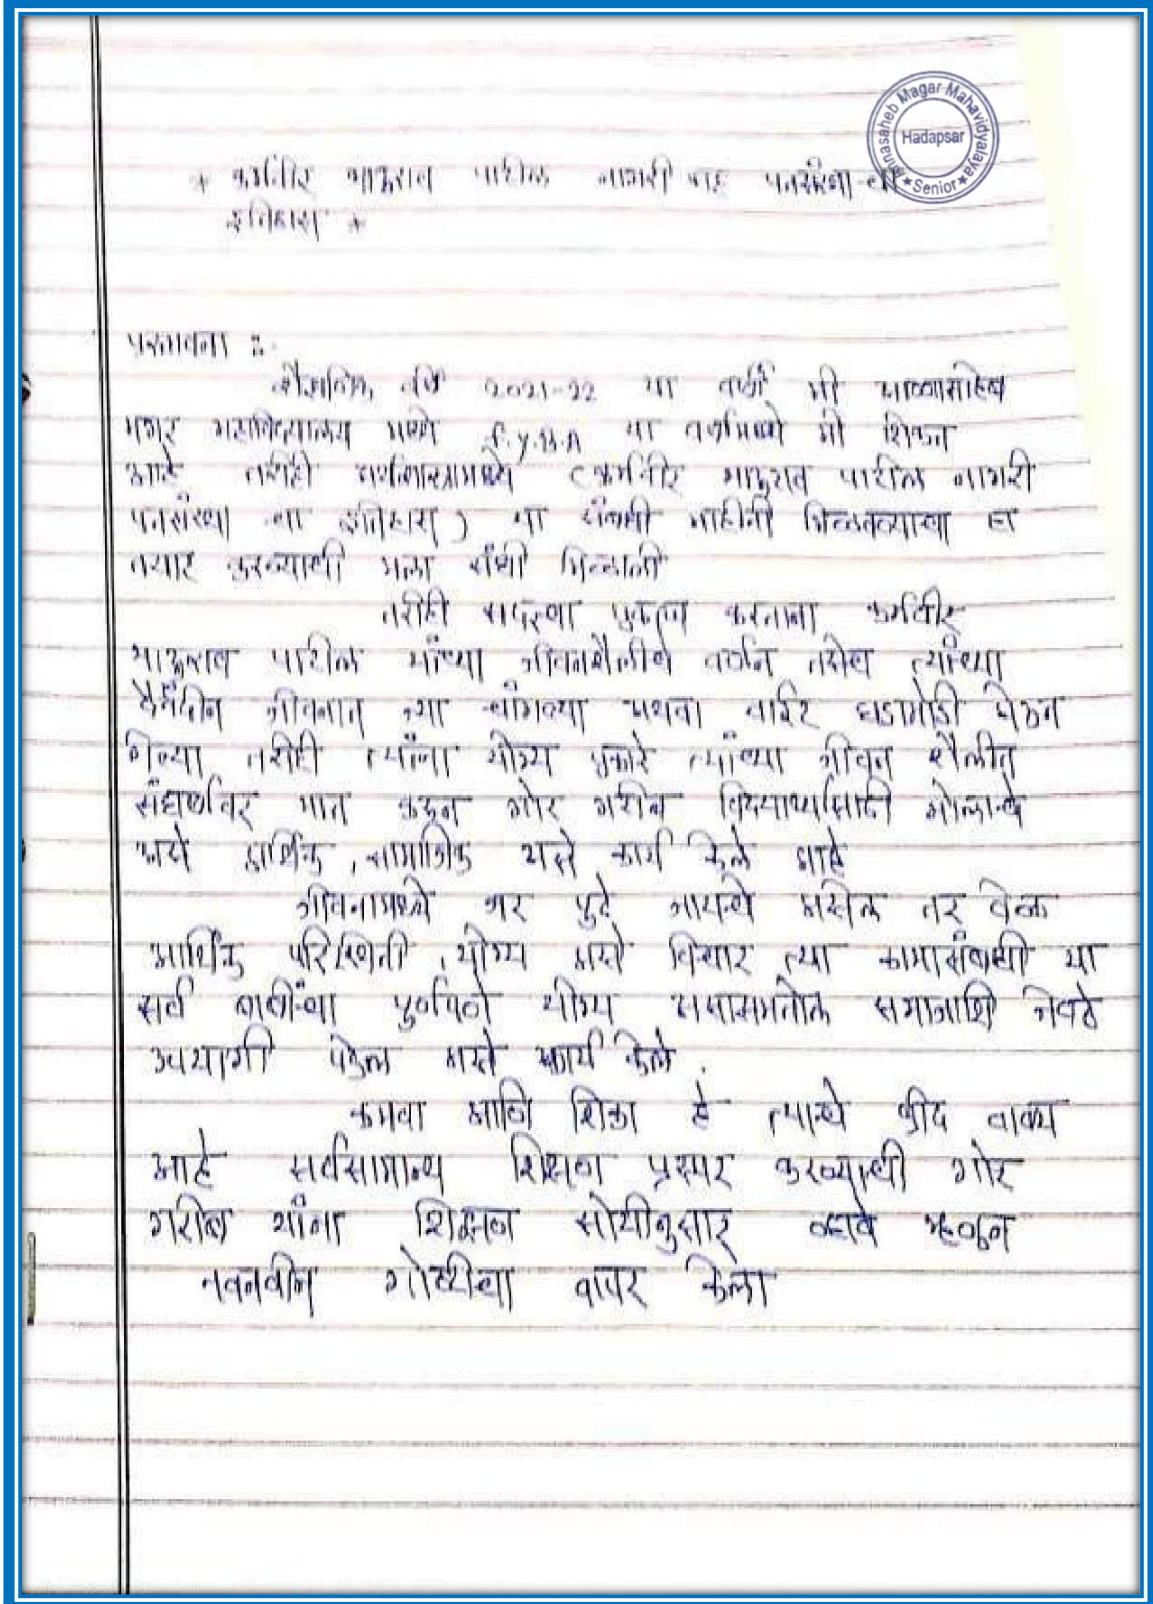 Annasaheb Magar Mahavidyalaya
Hadapsar
★ Senior ★
* कर्मवीर भाऊराव पाटील नागरी सह पतसंस्था चा
इतिहास *
प्रस्तावना :-
शैक्षणिक वर्ष 2021-22 या वर्षी मी अण्णासाहेब
मगर महाविद्यालय मध्ये F.Y.B.A या वर्गामध्ये मी शिकत
आहे तरीही अर्थशास्त्रामध्ये (कर्मवीर भाऊराव पाटील नागरी
पतसंस्था चा इतिहास) या संबधी माहीती मिळवण्याचा
तयार करण्याची मला संधी मिळाली
तरीही प्रकल्प करताना कर्मवीर
भाऊराव पाटील यांच्या जीवनशैलीचे वर्णन तसेच त्यांच्या
दैनंदीन जीवनात ज्या चांगल्या अथवा वाईट घडामोडी घेऊन
गेल्या तरीही त्यांना योग्य प्रकारे त्यांच्या जीवन शैलीत
संघर्षावर मात करून गोर गरीब विद्यार्थ्यांसाठी मोलाचे
असे आर्थिक, सामाजिक असे कार्य केले आहे
जीवनामध्ये जर पुढे जायचे असेल तर वेळ
आर्थिक परिस्थिती, योग्य असे विचार त्या कामासंबधी या
सर्व बाबींचा पुर्णपणे योग्य समाजाशि जेवढे
उपयागी पडेल असे कार्य केले.
कमवा आणि शिका हे त्याचे ब्रीद वाक्य
आहे सर्वसामान्य शिक्षण प्रसार करण्याची गोर
गरीब यांना शिक्षण सोयीनुसार व्हावे म्हणुन
नवनवीन गोष्टीचा वापर केला